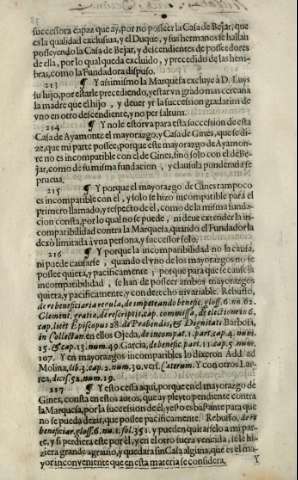 successora capaz que ay, por no posseer la Casa de Bejar, que
es la qualidad exclusiua, y el Duque, y sus hermanos se hallan
posseyendo la Casa de Bejar, y descendientes de posseedores
de ella, por lo qual queda excluido, y precedido de las hem-
bras, como la Fundadora dispuso.
213 ¶ Y assimismo la Marquesa excluye à D. Luys
su hijo, por estarle precediendo, y estar vn grado mas cercana
la madre que el hijo, y deuer yr la succession gradatim de
vno en otro descendiente, y no per saltum.
214 ¶ Y no le estorva para esta succession de esta
Casa de Ayamonte el mayorazgo, y Casa de Gines, que se di-
ze, que mi parte possee, porque este mayorazgo de Ayamon-
te no es incompatible con el de Gines, sino solo con el de Be-
jar, como de su misma fundacion, y clausula ponderada se
prueua.
215 ¶ Y porque el mayorazgo de Gines tampoco
es incompatible con el, y solo se hizo incompatible para el
primero llamado, y respecto de el, como de la misma funda-
cion consta, por lo qual no se puede, ni deue extender la in-
compatibilidad contra la Marquesa, quando el Fundador la
dexò limitada à vna persona, y successor solo.
216 ¶ Y porque la incompatibilidad no la causa,
ni puede causarse, quando el vno de los mayorazgos no se
possee quieta, y pacificamente, porque para que se cause la
incompatibilidad, se han de posseer ambos mayorazgos
quieta, y pacificamente, y con derecho inuariable. Rebufo,
de rebeneficiaria regula, de impetrando benefic. gloss. 6. nu. 62.
Clement. gratie, de rescriptis, cap. commissa, de electione in 6.
cap. licet Episcopus 28. de Præbendis, & Dignitatib. Barbosa,
in Collectan. en ellos Ojeda, de incompat. 1. part. cap. 4. num.
25. & cap. 13. num. 49. Garcia, de benefic. part. 11. cap. 5. num.
107. Y en mayorazgos incompatibles lo dixeron Add. ad
Molina, lib. 3. cap. 2. num. 30. vers. Cæterum. Y con otros La-
rrea, decis. 52. num. 19.
217 ¶ Y esto cessa aqui, porque en el mayorazgo de
Gines, consta en estos autos, que ay pleyto pendiente contra
la Marquesa, por la succession de èl; y esto es bastante para que
no se pueda dezir, que possee pacificamente. Rebufo, de re
beneficiar. gloss. 6. nu. 1. fol. 351. y pueden quitarselo à mi par-
te, y si perdiera este por èl, y en el otro fuera vencida, se le hi-
ziera grande agrauio, y quedara sin Casa alguna, que es el ma-
yor inconveniente que en esta materia se considera.
Y